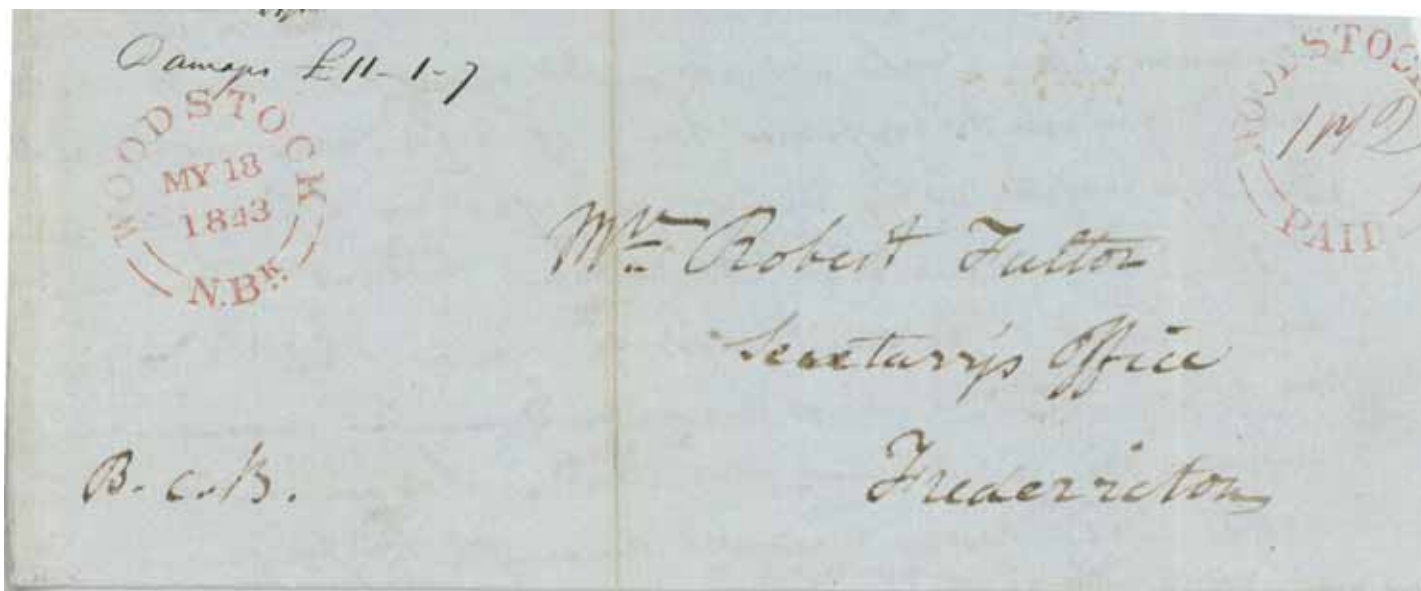 Damages £11-1-7
WOODSTOCK
MY 18
1843
N.BK.
WOODSTOCK
PAID
Mr Robert Fulton
Secretary's Office
Fredericton
B.C.B.